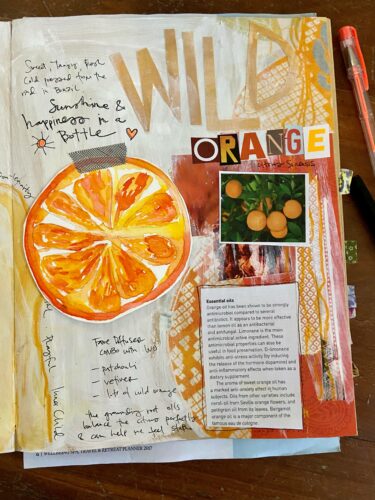 WILD
ORANGE
citrus sinensis
Sweet, Tangy, Fresh
Cold pressed from the
rind in Brazil
Sunshine &
happiness in a
Bottle
Essential oils
Orange oil has been shown to be strongly
antimicrobial compared to several
antibiotics. It appears to be more effective
than lemon oil as an antibacterial
and antifungal. Limonene is the main
antimicrobial active ingredient. These
antimicrobial properties can also be
useful in food preservation. D-limonene
exhibits anti-stress activity by inducing
the release of the hormone dopamine) and
anti-inflammatory effects when taken as a
dietary supplement.
The aroma of sweet orange oil has
a marked anti-anxiety effect in human
subjects. Oils from other varieties include
neroli oil from Seville orange flowers, and
petitgrain oil from its leaves. Bergamot
orange oil is a major component of the
famous eau de cologne.
Diffuser
combo with
- patchouli
- vetiver
- lots of wild orange
the grounding root oils
balance the citrus perfectly
& can help me feel
Playful
Inner Child
WELLBEING SPA, TRAVEL & RETREAT PLANNER 2017